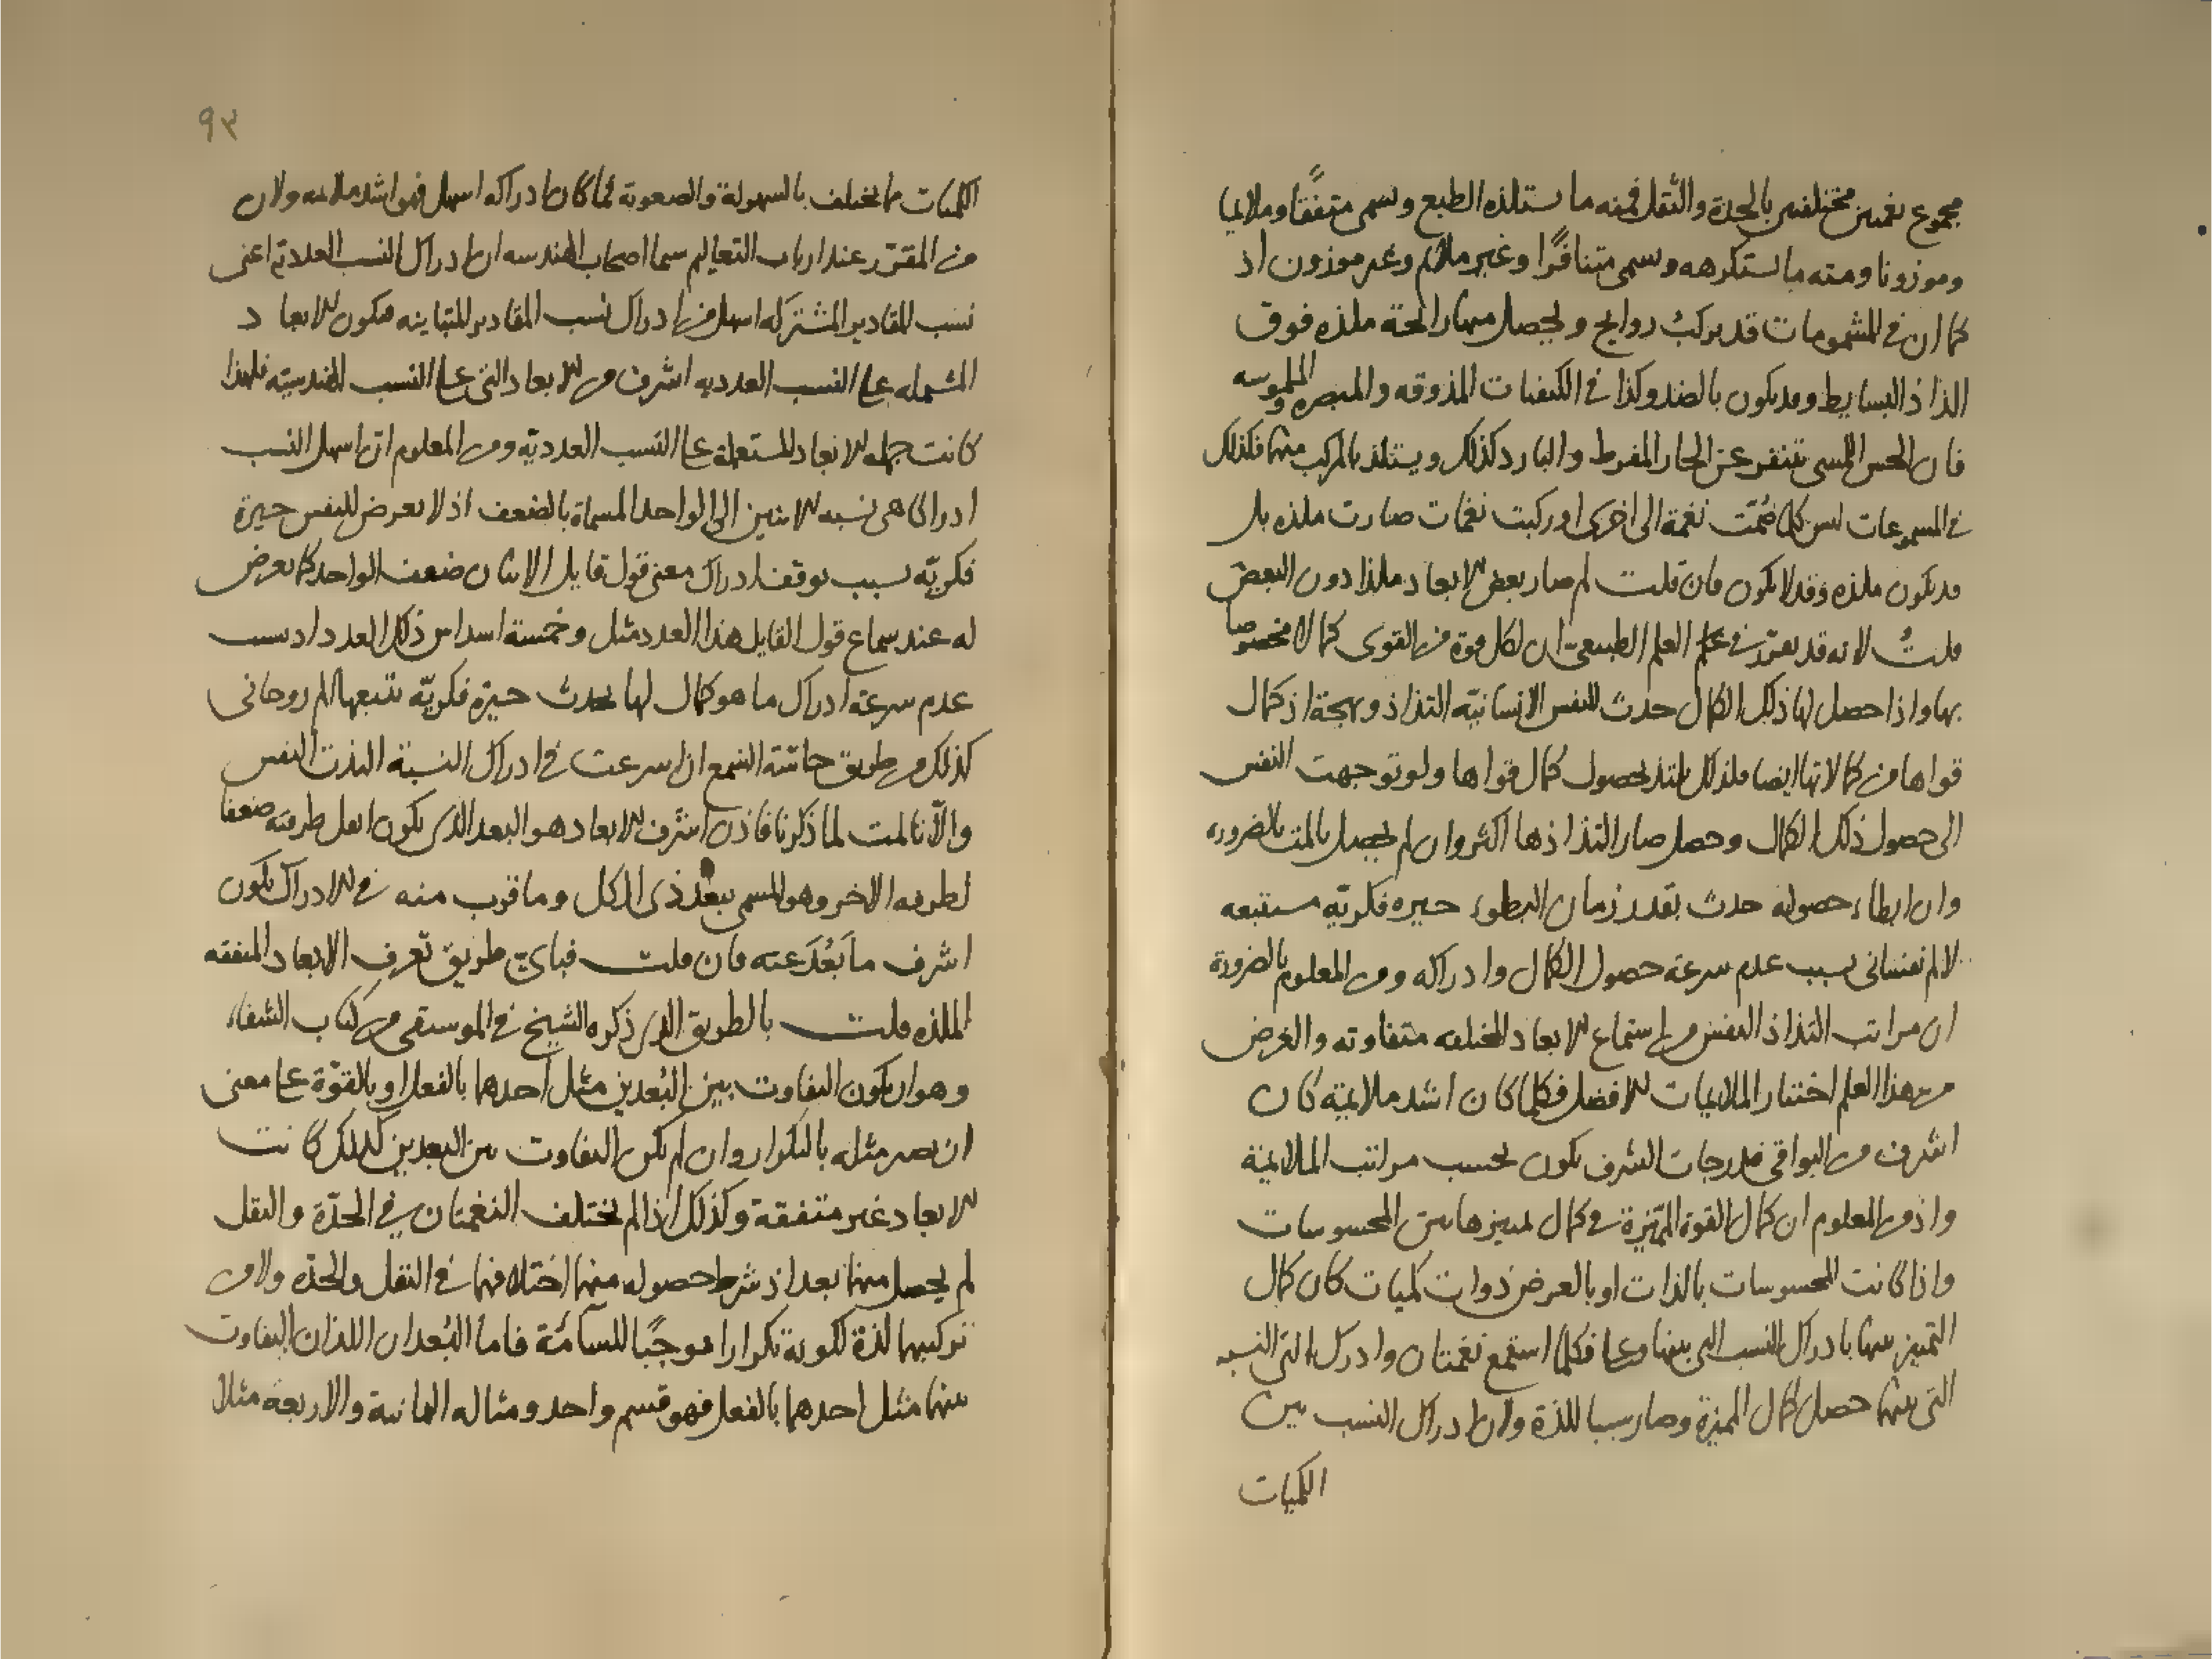 مجموع نغمتين مختلفتين بالحدة والثقل فمنه ما ستلذه الطبع وسمى متفقا وملايما
وموزونا ومنه ما ستكرهه وسمى متنافرًا وغير ملايم وغير موزون اذ
كما ان في المشمومات قد يركب روايح ويحصل منها رايحة ملذه فوق
الذاذ البسايط وقد يكون بالضد وكذا في الكيفيات المذوقه والمبصره والملموسه
فان الحس اللمسى تتنفر عن الحار المفرط والبارد كذلك ويستلذ بالمركب منهما فكذلك
في المسموعات ليس كل ما ضُمّت نغمة الى اخرى او ركبت نغمات صارت ملذه بل
قد يكون ملذه وقد لا يكون فان قلت لم صار بعض الابعاد ملذا دون البعض
قلتُ لانه قد تقرّر في علم العلم الطبيعى ان لكل قوة من القوى كمالا مخصوصا
بها واذا حصل لها ذلك الكمال حدث للنفس الانسانيّة التذاذ وبهجة اذ كمال
قواها من كمالاتها ايضا فلذلك يلتذ بحصول كمال قواها ولو توجهت النفس
الى حصول ذلك الكمال وحصل صار التذاذها اكثر وان لم يحصل تالمت بالضروره
وان ابطاء حصوله حدث بقدر زمان البطوء حيره فكريّه مستتبعه
لالم نفسانى بسبب عدم سرعة حصول الكمال وادراكه ومن المعلوم بالضرورة
ان مراتب التذاذ النفس من استماع الابعاد المختلفه متفاوته والغرض
من هذا العلم اختيار الملايمات الافضل فكلما كان اشد ملايمة كان
اشرف من البواقى فدرجات الشرف يكون بحسب مراتب الملايمة
واذ من المعلوم ان كمال القوة المميّزة في كمال تمييزها بين المحسوسات
واذا كانت المحسوسات بالذات او بالعرض ذوات كميات كان كمال
التمييز بينها بادراك النسب التى بينها فكلما استمع نغمتان وادرك النسبه
التى بينهما حصل كمال المميزة وصار سببا للذة ولان ادراك النسب بين
الكميات
٩٣
الكميات مما يختلف بالسهولة والصعوبة فما كان ادراكه اسهل فهو اشد ملايمه ولان
من المقرّر عند ارباب التعاليم سيما اصحاب الهندسه ان ادراك النسب العددية اعنى
نسب المقادير المشتركه اسهل من ادراك نسب المقادير المتباينه فيكون الابعاد
المشتمله على النسب العدديه اشرف من الابعاد التى على النسب الهندسيّه فلهذا
كانت جمله الابعاد المستعملة على النسب العدديّه ومن المعلوم ان اسهل النسب
ادراكا هى نسبه الاثنين الى الواحد المسماة بالضعف اذ لا يعرض للنفس حيرة
فكريّه بسبب توقف ادراك معنى قول قايل الاثنان ضعف الواحد كما يعرض
له عند سماع قول القايل هذا العدد مثل وخمسة اسداس ذلك العدد اذ بسبب
عدم سرعة ادراك ما هو كمال لها يحدث حيرة فكريّه تتبعها الم روحانى
كذلك من طريق حاسّة السمع ان اسرعت في ادراك النسبة التذت النفس
والّا تالمت لما ذكرنا فاذن اشرف الابعاد هو البعد الذى يكون اثقل طرفيه ضعفا
لطرفه الاخر وهو المسمى ببعد ذى الكل وما قرب منه في الادراك يكون
اشرف ما بَعُدَ عنه فان قلت فباىّ طريق تعرف الابعاد المتفقه
الملذه قلت بالطريق الذى ذكره الشيخ في الموسيقى من كتاب الشفاء
وهو ان يكون التفاوت بين البُعدين مثل احدهما بالفعل او بالقوّة على معنى
ان يصير مثله بالتكرار وان لم يكن التفاوت بين البعدين كذلك كانت
الابعاد غير متفقة وكذلك اذا لم يختلف النغمتان في الحدّة والثقل
لم يحصل منهما بعد اذ شرط حصوله منهما اختلافهما في الثقل والحدّه ولا من
تركيبهما لذة لكونه تكرارا موجبًا للسآمة فاما البُعدان اللذان التفاوت
بينهما مثل احدهما بالفعل فهو قسم واحد ومثاله الثمانية والاربعة مثلا